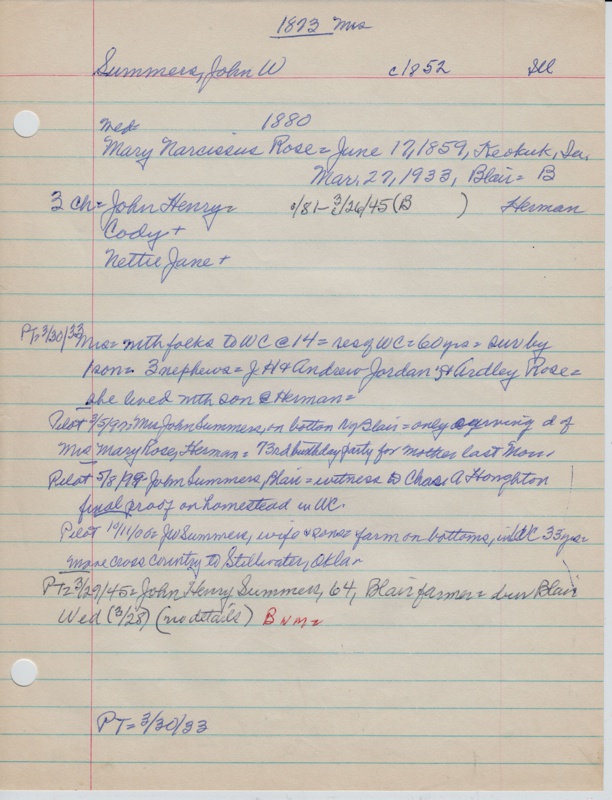 1873 Mrs
Summers, John W c1852 Ill
med= 1880
Mary Narcissus Rose = June 17, 1859, Keokuk, Ia.
Mar. 27, 1933, Blair = B
3 ch = John Henry = c/81 - 3/26/45 (B ) Herman
Cody +
Nettie Jane +
PT= 3/30/33 Mrs = with folks to WC @ 14 = res of WC = 60 yrs = surv by
1 son = 3 nephews = J H & Andrew Jordan & Ardley Rose =
she lived with son @ Herman =
Pilot 3/5/97 = Mrs John Summers, on bottom by Blair = only surviving d of
Mrs Mary Rose, Herman = 73rd birthday party for mother last Mon.
Pilot 5/8/ John Summers, Blair = witness to Chas. A Houghton
final proof on homestead in WC.
Pilot 10/11/00 = JW Summers, wife & sons = farm on bottoms, in WC 35 yrs =
move cross country to Stillwater, Okla=
PT= 3/29/45 = John Henry Summers, 64, Blair farmer = bur Blair
Wed (3/28) (no details) B
PT= 3/30/33